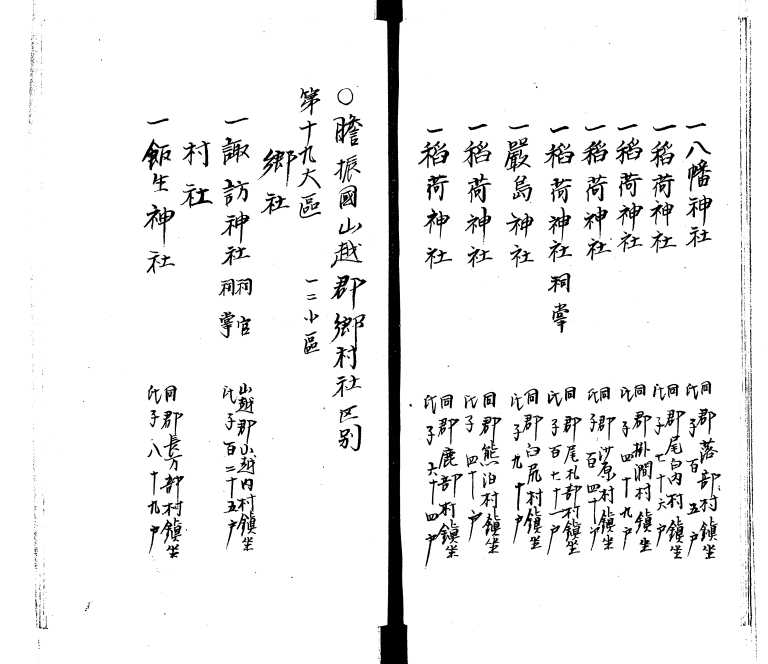 一八幡神社
同郡落部村鎮坐
氏子百五戸
一稻荷神社
同郡尾白内村鎮坐
氏子七十六戸
一稻荷神社
同郡掛澗村鎮坐
氏子四十九戸
一稻荷神社
同郡沙原村鎮坐
氏子百四十戸
一稻荷神社 祠掌
同郡尾札部村鎮坐
氏子百七十一戸
一嚴島神社
同郡臼尻村鎮坐
氏子九十戸
一稻荷神社
同郡熊泊村鎮坐
氏子四十戸
一稻荷神社
同郡鹿部村鎮坐
氏子六十四戸
○膽振國山越郡郷村社区别
第十九大區 一二小區
郷社
一諏訪神社 祠官
祠掌
山越郡山越内村鎮坐
氏子百二十五戸
村社
一飯生神社
同郡長万部村鎮坐
氏子八十九戸